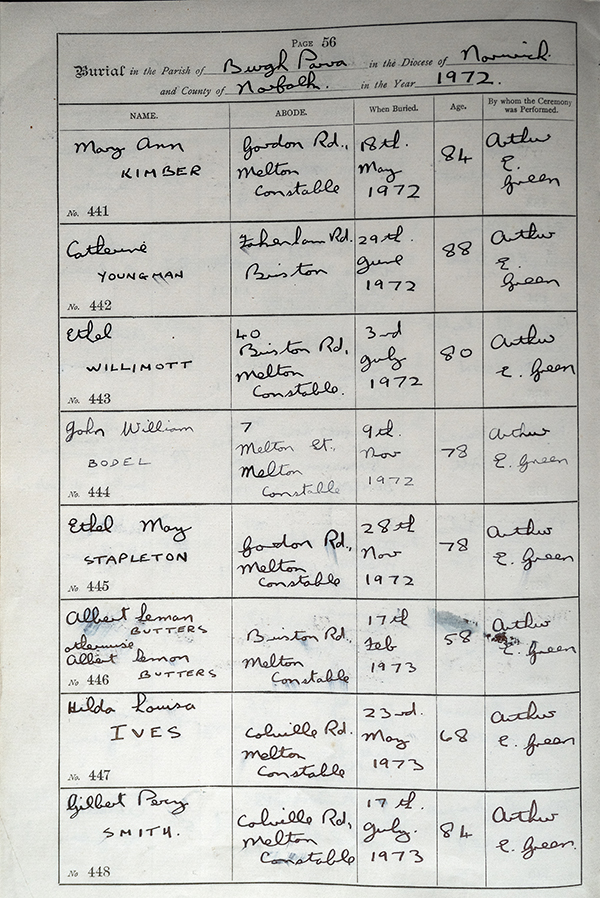 PAGE 56
Burial in the Parish of Burgh Parva in the Diocese of Norwich.
and County of Norfolk. in the Year 1972.
NAME. ABODE. When Buried. Age. By whom the Ceremony was Performed.
Mary Ann Gordon Rd., 18th. 84 Arthur
KIMBER Melton May E.
Constable 1972 Green
No. 441
Catherine Fakenham Rd. 29th. 88 Arthur
YOUNGMAN Briston June E.
1972 Green
No. 442
Ethel 40 3rd 80 Arthur
WILLIMOTT Briston Rd, July E. Green
Melton 1972
Constable.
No. 443
John William 7 9th. 78 Arthur
BODEL Melton St., Nov E. Green
Melton 1972
Constable
No. 444
Ethel May Gordon Rd., 28th 78 Arthur
STAPLETON Melton Nov E. Green
Constable 1972
No 445
Albert Leman 17th 58 Arthur
BUTTERS Briston Rd., Feb E. Green
otherwise Melton 1973
Albert Lemon Constable
No 446 BUTTERS
Hilda Louisa 23rd. 68 Arthur
IVES Colville Rd. May E. Green
Melton 1973
Constable
No. 447
Gilbert Percy Colville Rd, 17th. 84 Arthur
SMITH. Melton July. E. Green.
Constable 1973
No 448